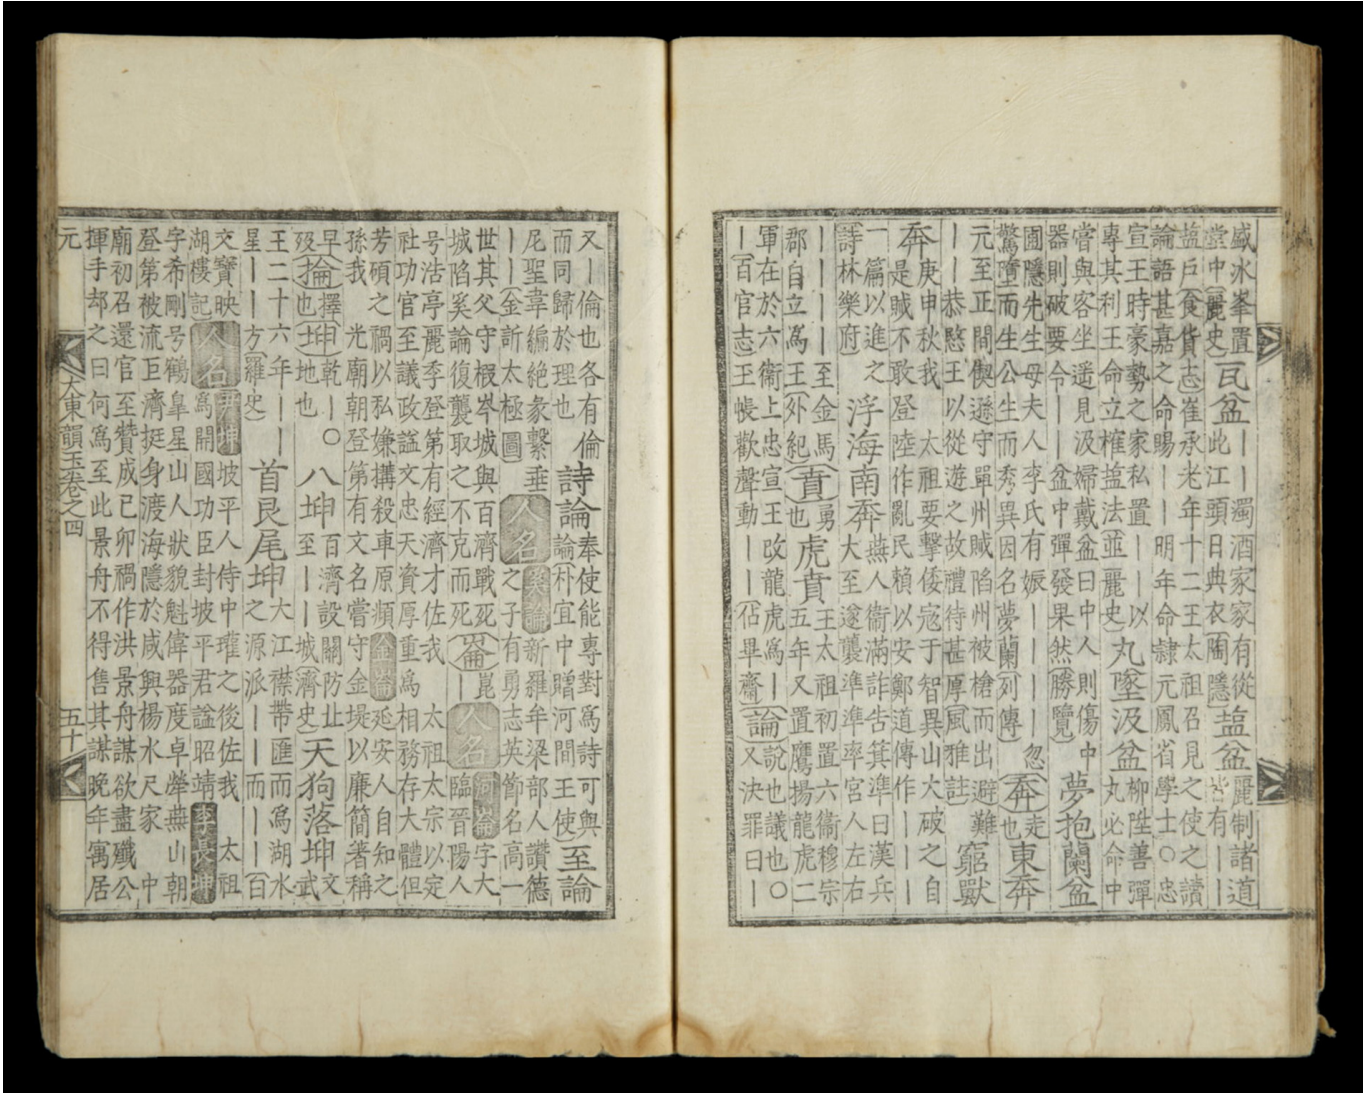 盛氷峯置
堂中(麗史)瓦盆｜｜濁酒家家有從
此江頭日典衣(陶隱)盐盆麗制諸道
皆有｜｜
盐戶(食貨志)崔承老年十二王太祖召見之使之讀
論語甚嘉之命賜｜｜明年命隷元鳳省學士○忠
宣王時豪勢之家私置｜｜以
專其利王命立榷盐法並(麗史)丸墜汲盆柳陞善彈
丸必命中
嘗與客坐遥見汲婦戴盆曰中人則傷中
器則破要令｜盆中彈發果然(勝覽)夢抱蘭盆
圃隱先生母夫人李氏有娠｜｜｜｜忽
驚墮而生公生而秀異因名夢蘭(列傳)(奔)走也東奔
元至正間偰遜守單州賊陷州被槍而出避難
｜｜恭愍王以從遊之故禮待甚厚(風雅註)窮獸
奔庚申秋我 太祖要擊倭寇于智異山大破之自
是賊不敢登陸作亂民賴以安鄭道傳作｜｜
一篇以進之
詩(林樂府)浮海南奔燕人衛滿詐告箕準曰漢兵
大至遂襲準準率宮人左右
｜｜｜｜至金馬
郡自立爲王(外紀)(賁)勇也虎賁王太祖初置六衛穆宗
五年又置鷹揚龍虎二
軍在於六衛上忠宣王改龍虎爲｜｜
｜(百官志)王帳歡聲動｜｜(佔畢齋)(論)說也議也○
又決罪曰｜
又｜倫也各有倫
而同歸於理也詩論奉使能專對爲詩可與
論(朴宜中贈河間王使)至論
尼聖韋編絶彖繫垂
｜｜(金訢太極圖)人名奚論新羅牟梁部人讚德
之子有勇志英節名高一
世其父守椵岑城與百濟戰死
城陷奚論復襲取之不克而死(崙)崑｜人名河崙字大
臨晉陽人
号浩亭麗季登第有經濟才佐我 太祖太宗以定
社功官至議政謚文忠天資厚重爲相務存大體但
芳碩之禍以私嫌搆殺車原頫金崙延安人自知之
孫我 光廟朝登第有文名嘗守金堤以廉簡著稱
早歿(掄)擇也(坤)乾｜○
地也八坤百濟設關防止
至｜｜城(濟史)天狗落坤文武
王二十六年｜｜｜
星｜｜方(羅史)首艮尾坤大江襟帶匯而爲湖水
之源派｜｜而｜｜(百
文寶映
湖樓記)人名尹坤坡平人侍中瓘之後佐我 太祖
爲開國功臣封坡平君謚昭靖李長坤
字希剛号鶴皐星山人狀貌魁偉器度卓犖燕山朝
登第被流巨濟挺身渡海隱於咸興楊水尺家 中
廟初召還官至贊成己卯禍作洪景舟謀欲盡殲公
揮手却之曰何爲至此景舟不得售其謀晩年寓居
元
大東韻玉卷之四
五十